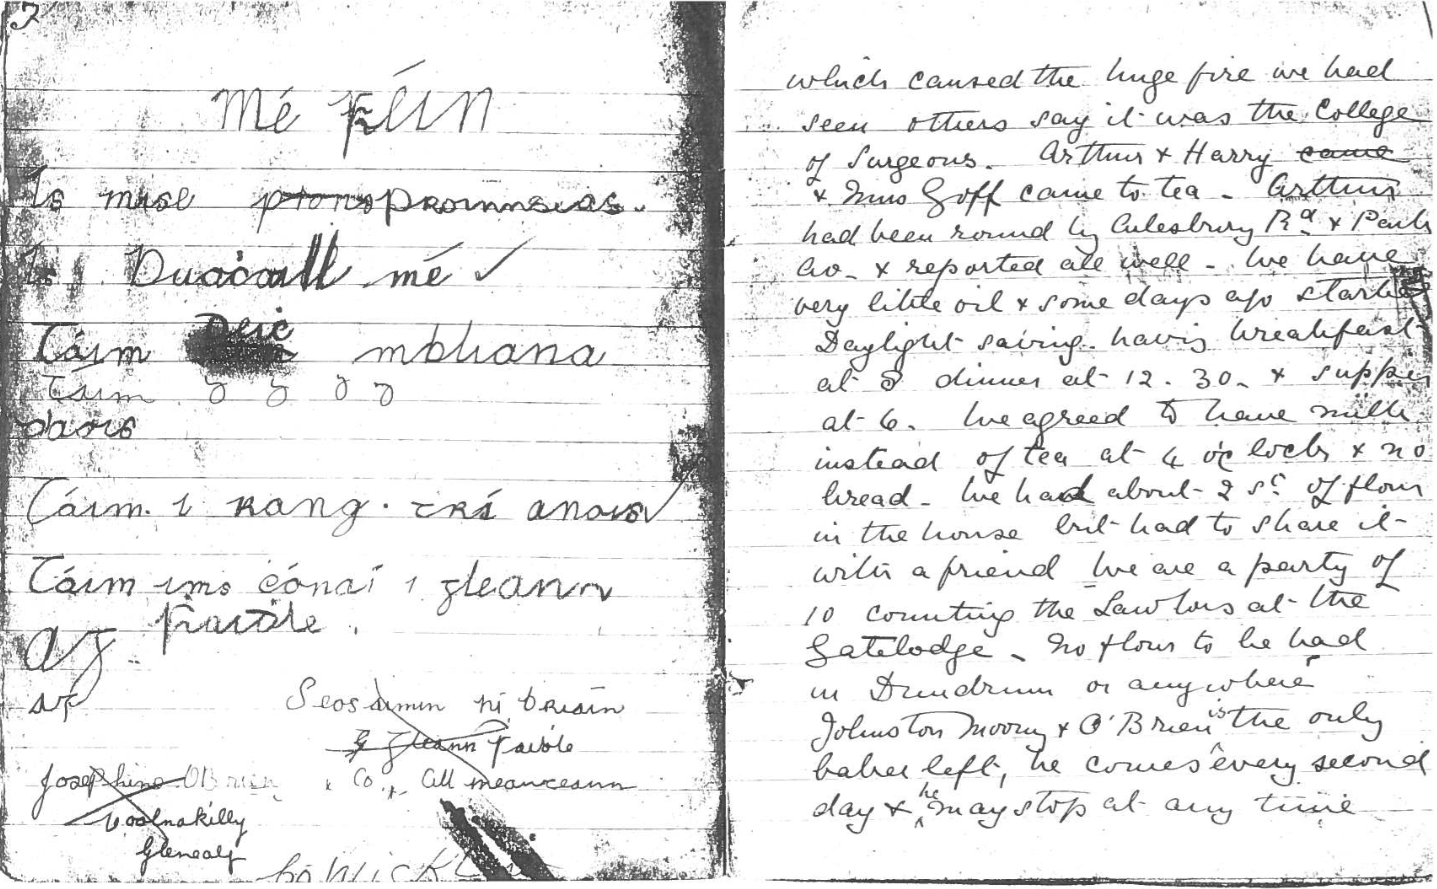 Mé Féin
Is mise Proinnsias.
Is Buaċaill mé ✓
Táim Deiċ mbliana
Táim
d'aois
Táim i Rang trí anois ✓
Táim ims ċónaí i gleann
Faidle.
ag
ar
Seosaimin ní Briain
Gleann Faidle
Josephine OBrien Co.
Coolnakilly
Glenealy
Co Wickl
which caused the huge fire we had
seen others say it was the College
of Surgeons. Arthur & Harry came
& Miss Goff came to tea - Arthur
had been round by Ailesbury Rd & Park
Av. & reported all well - We have
very little oil & some days ago started
Daylight saving. having breakfast
at 8 dinner at 12.30. & supper
at 6. We agreed to have milk
instead of tea at 4 o'c locks & no
bread - We had about 2 st of flour
in the house but had to share it
with a friend We are a party of
10 counting the Lawlors at the
Gatelodge - No flour to be had
in Dundrum or anywhere
Johnston Moony & O'Brien is the only
baker left, he comes every second
day & he may stop at any time